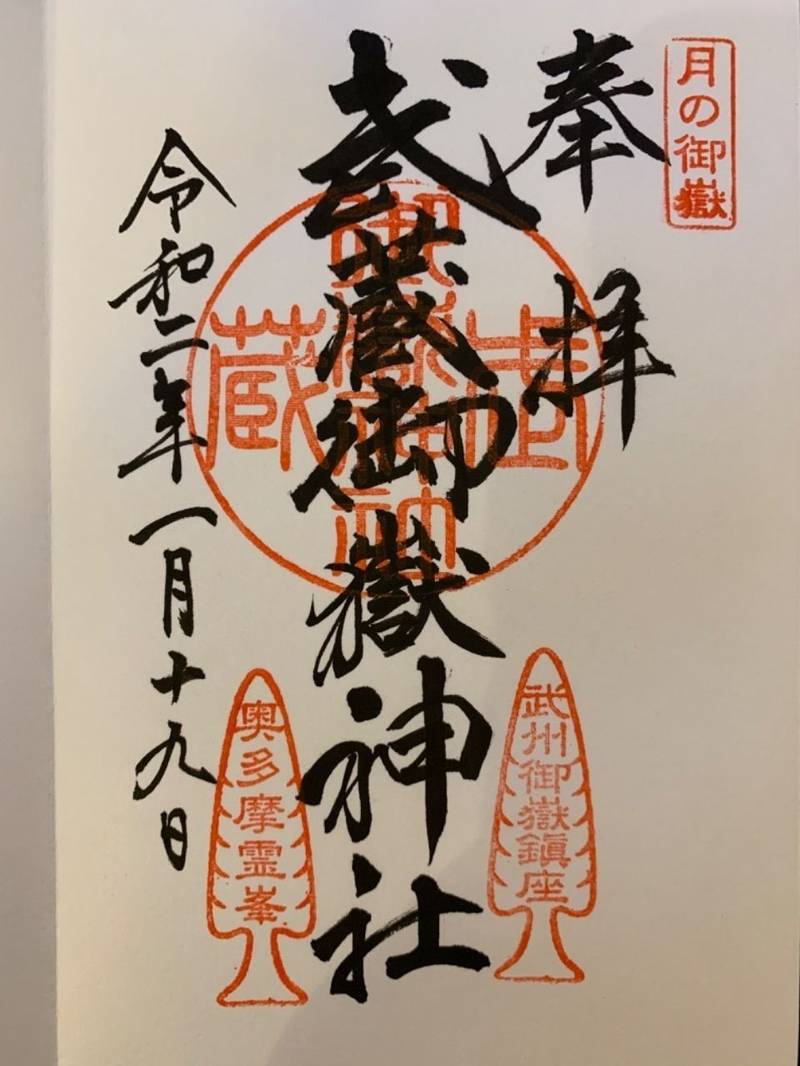 月の御嶽
奉拝
武蔵御嶽神社
武蔵
御嶽神社
武州御嶽鎮座
奥多摩霊峯
令和二年一月十九日